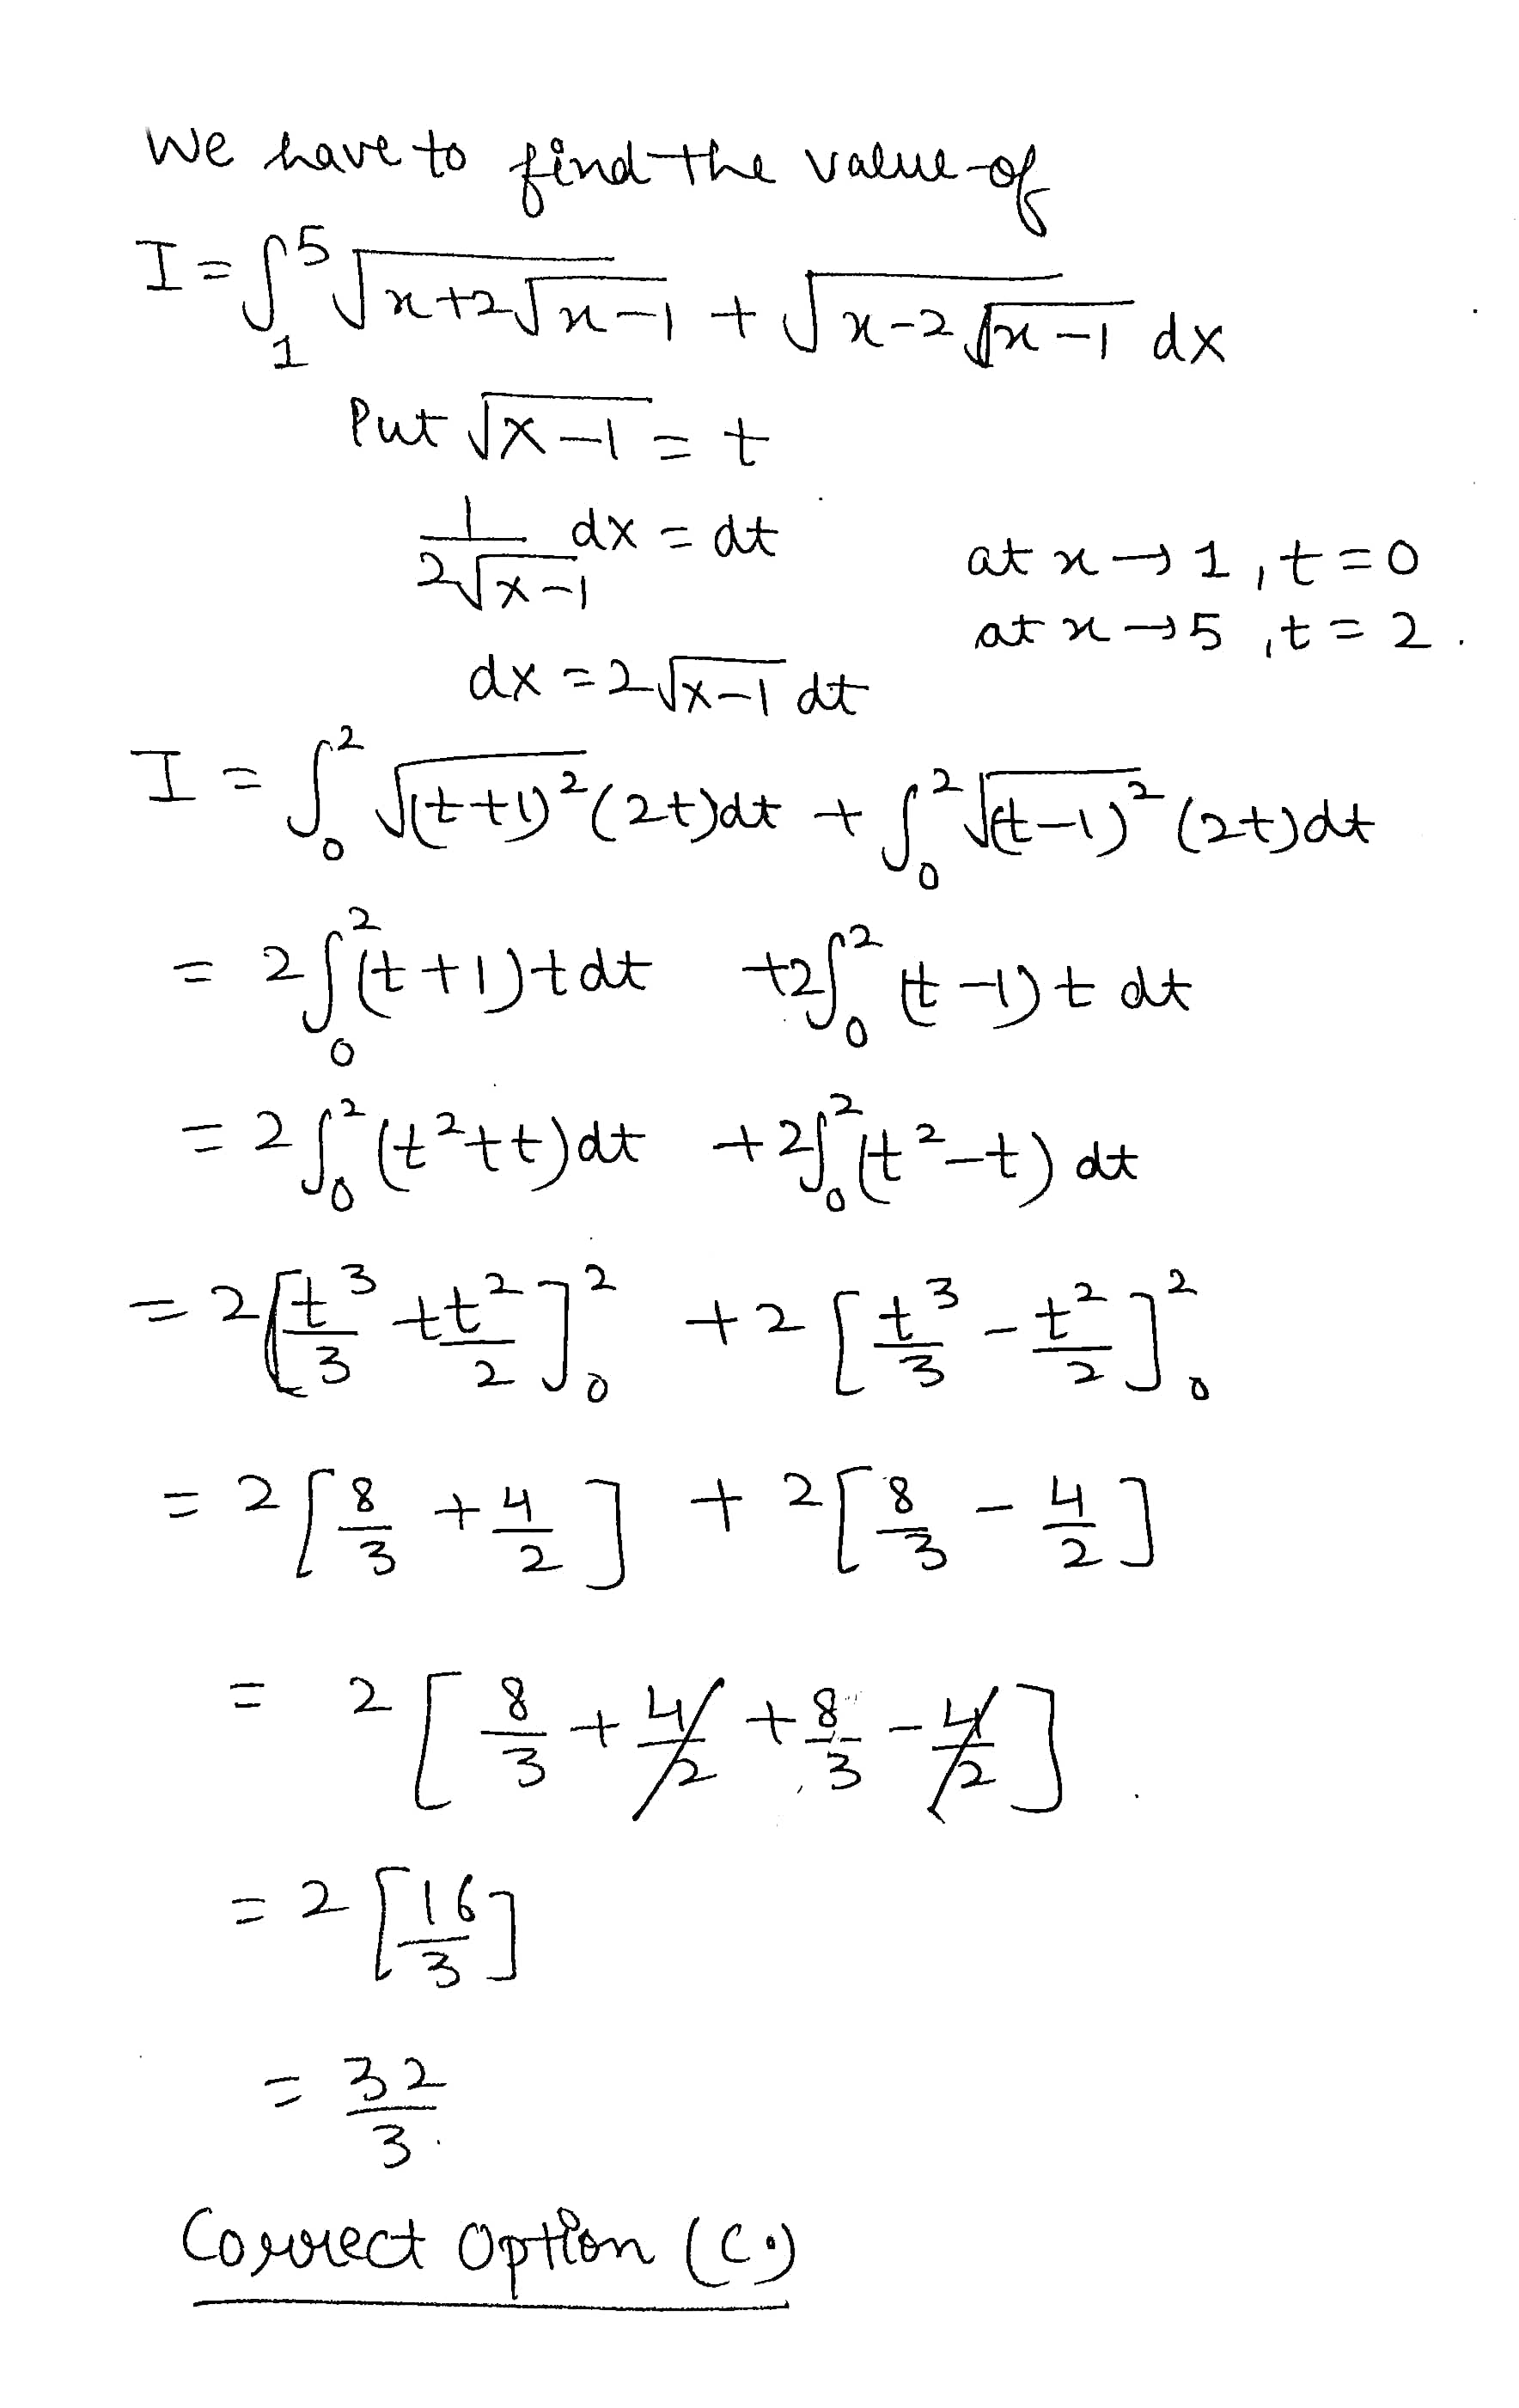 We have to find the value of
I = ∫₁⁵ √(x+2√(x-1)) + √(x-2√(x-1)) dx
Put √(x-1) = t
1/(2√(x-1)) dx = dt
at x → 1, t = 0
at x → 5, t = 2.
dx = 2√(x-1) dt
I = ∫₀² √((t+1)²) (2t)dt + ∫₀² √((t-1)²) (2t)dt
= 2∫₀² (t+1)t dt + 2∫₀² (t-1)t dt
= 2∫₀² (t²+t)dt + 2∫₀² (t²-t) dt
= 2[t³/3 + t²/2]₀² + 2[t³/3 - t²/2]₀²
= 2[8/3 + 4/2] + 2[8/3 - 4/2]
= 2[8/3 + 4/2 + 8/3 - 4/2]
= 2[16/3]
= 32/3.
Correct option (C.)